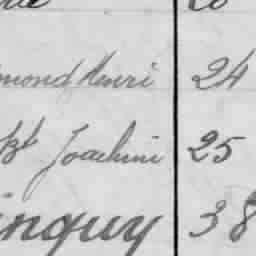 mond Henri 24
Bt Joachim 25
inguy 38